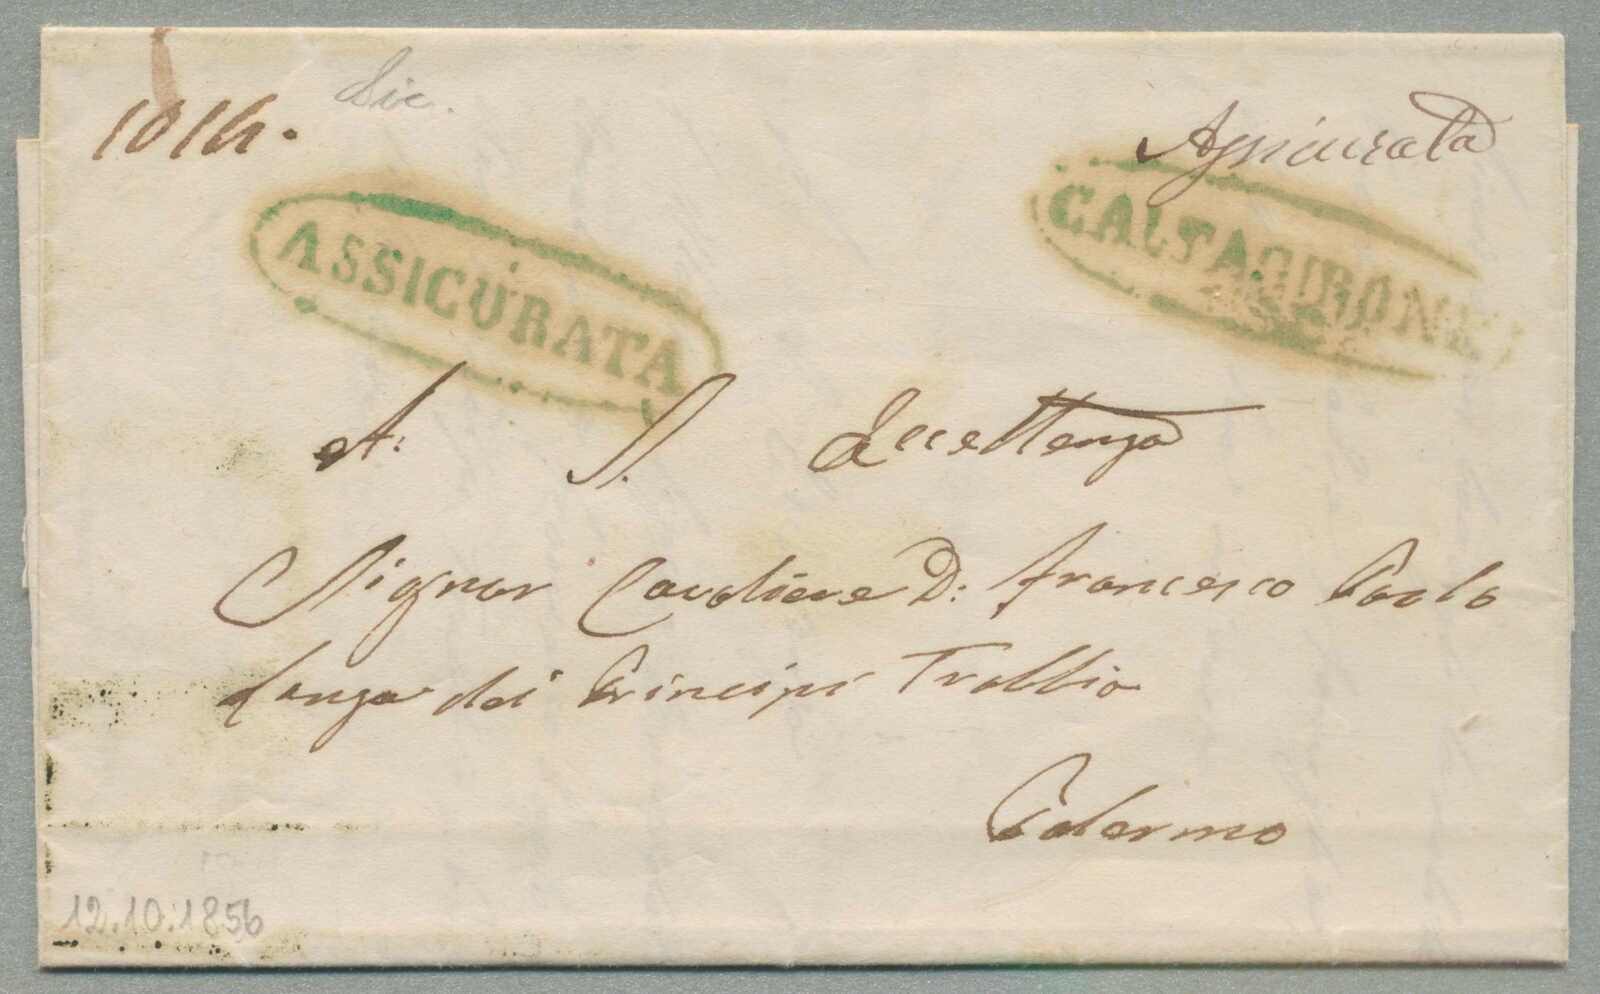 1016.
Sic.
Assicurata
ASSICURATA
CALTAGIRONE
A: S. Eccellenza
Signor Cavaliere D: Francesco Paolo
Lanza dei Principi Trabbia
Palermo
12.10.1856